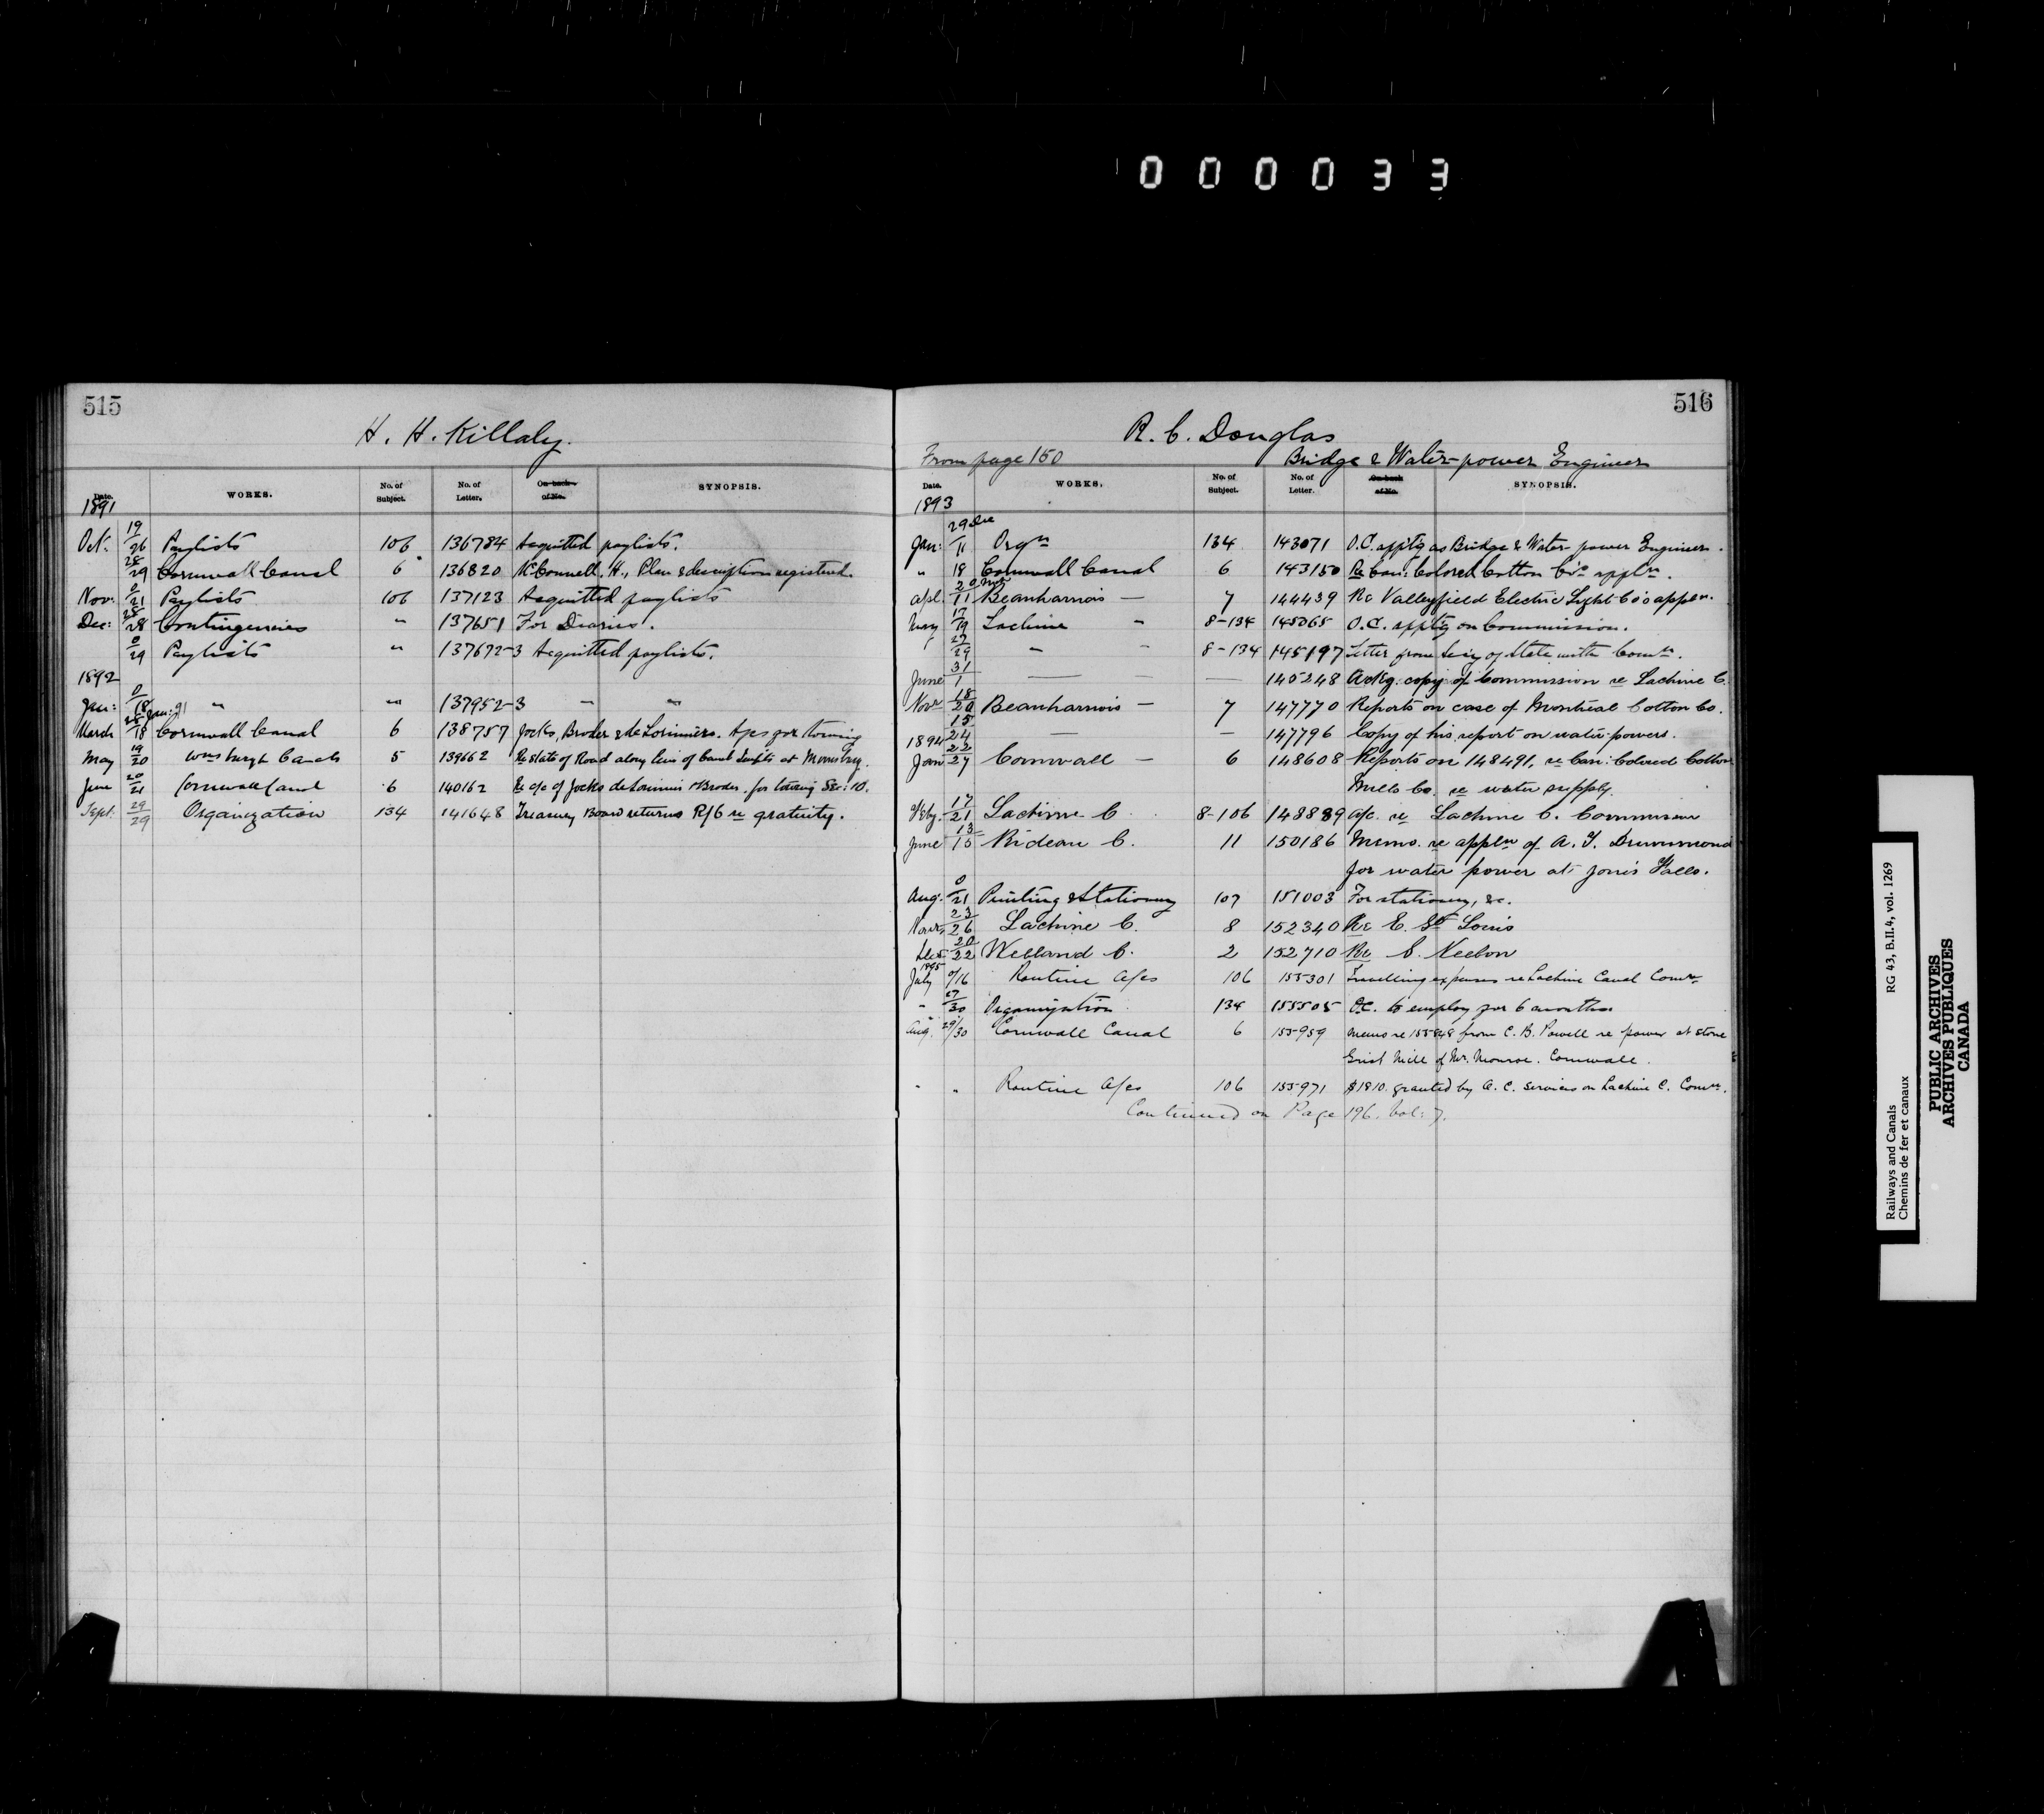 000033
515
H. H. Killaly.
Date. WORKS. No. of Subject. No. of Letter. On back of No. SYNOPSIS.
1891
Oct. 19/26 Paylists 106 136784 Acquitted paylists.
28/29 Cornwall Canal 6 136820 McConnell, H., Plan & description registered.
Nov. 0/21 Paylists 106 137123 Acquitted paylists
Dec: 28/28 Contingencies " 137651 For Diaries.
0/29 Paylists " 137672-3 Acquitted paylists.
1892
Jan: 0/18 " " 137952-3 " "
March 18 Cornwall Canal 6 138757 Jocks, Broder & de Lorimiers. A/cs for towing
May 19/20 Wmsburgh Canals 5 139662 Re state of Road along line of Canal at Morrisburg.
June 20/21 Cornwall Canal 6 140162 Re a/c of Jocks de Lorimier & Broder. for towing Sec: 10.
Sept: 29/29 Organization 134 141648 Treasury Board returns R/6 re gratuity.
516
R. C. Douglas
From page 150 Bridge & Water-power Engineer
Date. WORKS. No. of Subject. No. of Letter. On back of No. SYNOPSIS.
1893
Jan: 29 Dec/11 Orgn 134 143071 O.C. apptg as Bridge & Water-power Engineer.
" 18 Cornwall Canal 6 143150 Re Can: Colored Cotton Co's appln.
Apl. 11 Beauharnois — 7 144439 Re Valleyfield Electric Light Co's appln.
May 17/19 Lachine " 8-134 145065 O.C. apptg on Commission.
27/29 " " 8-134 145197 Letter from Secy of State with Comn.
June 31/1 — — — 145248 Ackg. copy of Commission re Lachine C.
Novr 18/20 Beauharnois — 7 147770 Reports on case of Montreal Cotton Co.
15/24 — — 147796 Copy of his report on water-powers.
1894
Jan 22/27 Cornwall — 6 148608 Reports on 148491, re Can: Colored Cotton
Mills Co. re water supply.
Feby. 17/21 Lachine C. 8-106 148889 a/c. re Lachine C. Commission
June 13/15 Rideau C. 11 150186 Memo. re appln of A. T. Drummond
for water power at Jones Falls.
Aug. 0/21 Printing & Stationery 107 151003 For stationery, &c.
Novr. 23/26 Lachine C. 8 152340 Re E. St Louis
Dec. 20/22 Welland C. 2 152710 Re S. Neelon
1895
July 0/16 Routine A/cs 106 155301 Travelling expenses re Lachine Canal Comn
" 27/30 Organization 134 155505 O.C. to employ for 6 months
Aug. 29/30 Cornwall Canal 6 155959 Memo re 155848 from C. B. Powell re power at stone
Grist Mill of Mr. Monroe. Cornwall.
" " Routine A/cs 106 155971 $1810. granted by O. C. services on Lachine C. Comn.
Continued on Page 196. Vol: 7.
RG 43, B.II.4, vol. 1269
Railways and Canals
Chemins de fer et canaux
PUBLIC ARCHIVES
ARCHIVES PUBLIQUES
CANADA